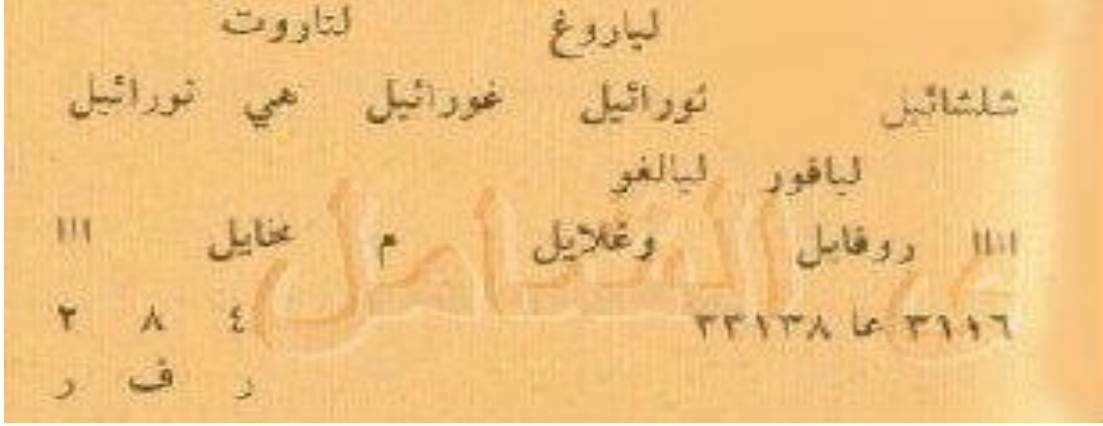 لياروغ لتاروت
شلشائيل نورائيل غورائيل هي نورائيل
ليافور ليالغو
١١١١١ روفايل وغلايل م مخايل ١١١
٣٩١٩٦ عا ٣٣١٣٨ ٤ ٨ ٢
ر ف ر
الشامل